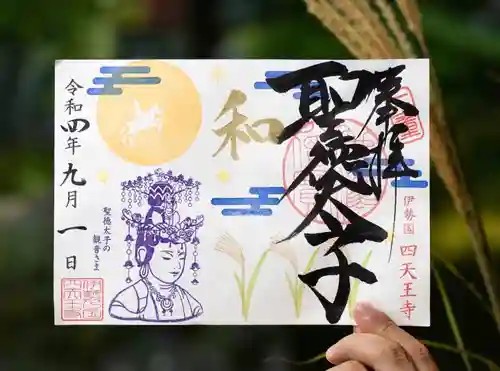 奉拝
聖徳太子
和
伊勢国 四天王寺
聖徳太子の
観音さま
令和四年九月一日